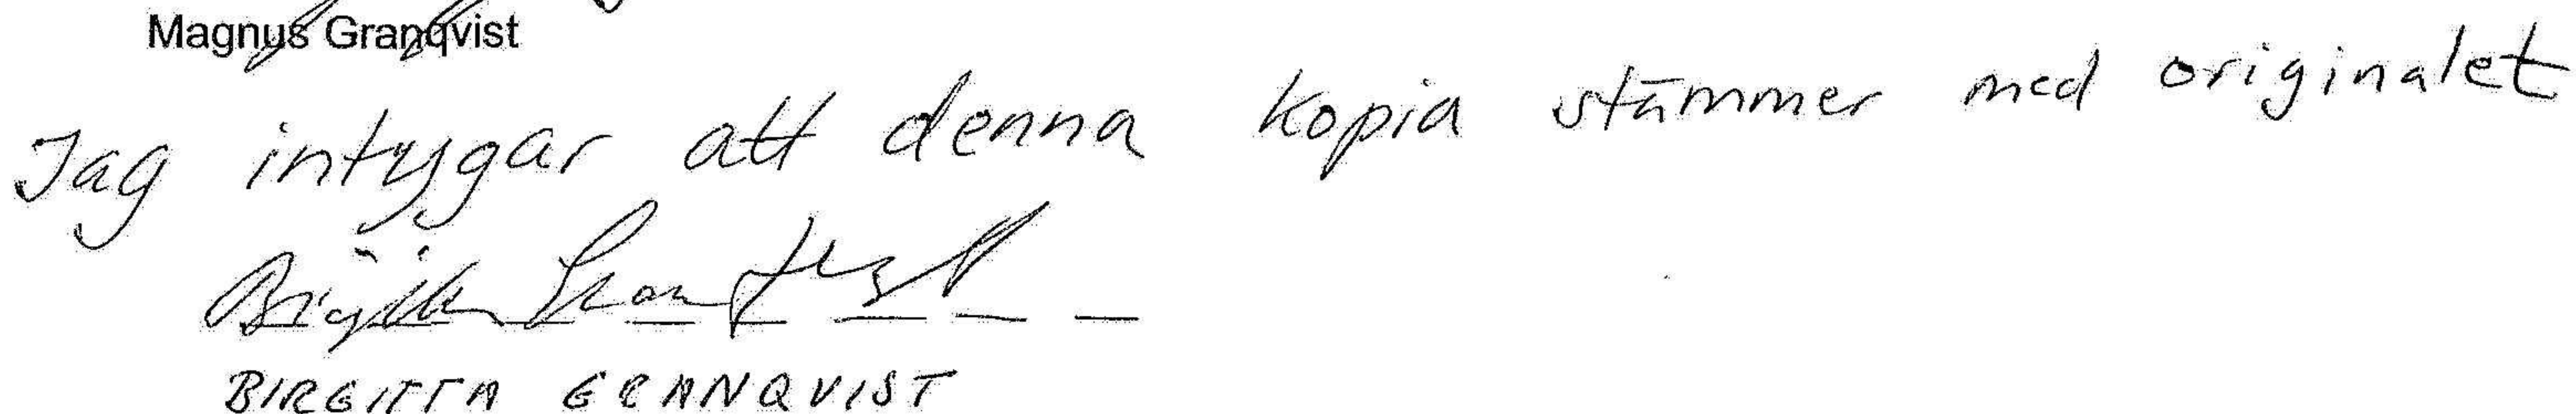 Magnus Granqvist
Jag intygar att denna kopia stämmer med originalet
Birgitta Granqvist
BIRGITTA GRANQVIST